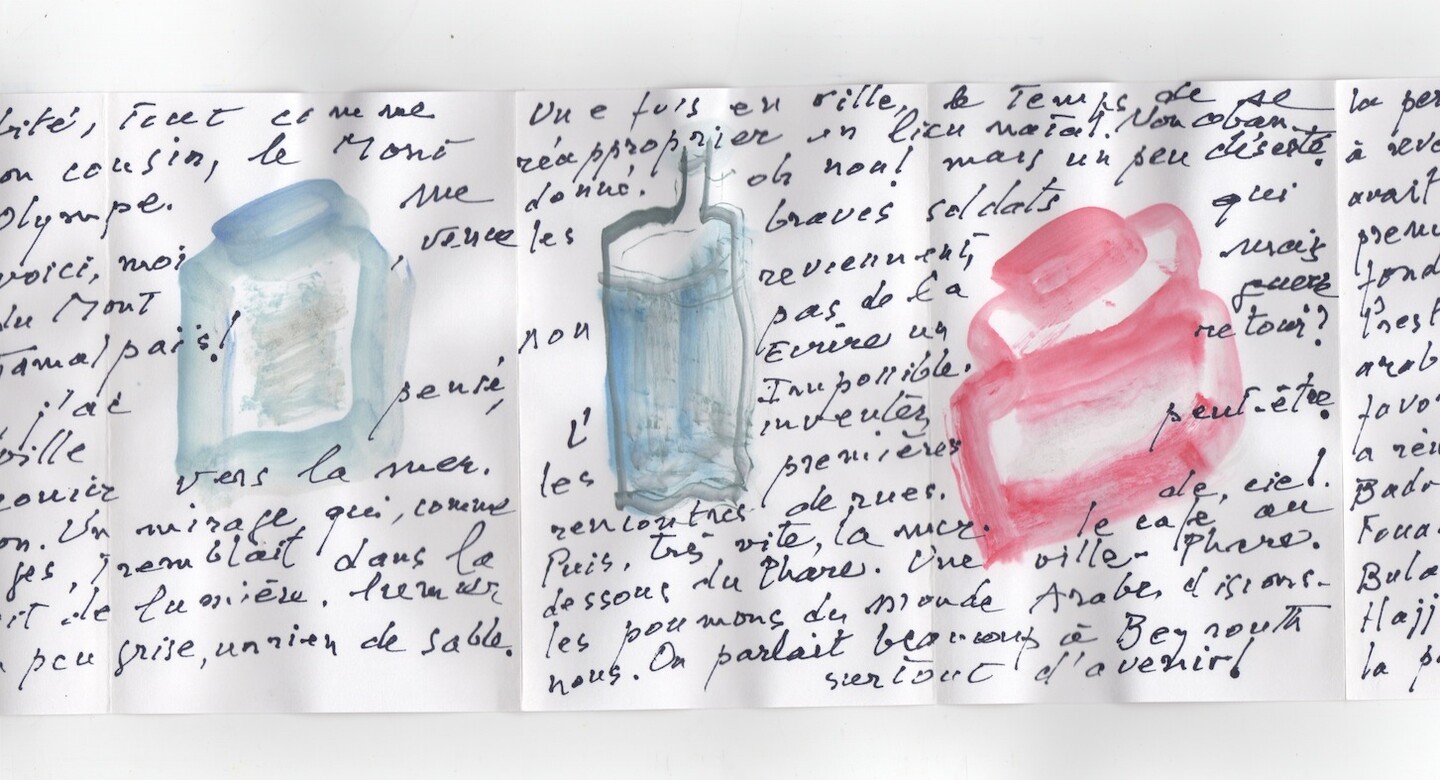 bité, tout comme
on cousin, le Mont
Olympe. me
voici, moi, venue
du Mont
Tamalpais!
j'ai pensé,
ville
courir vers la mer.
on. Un mirage, qui, comme
ges, tremblait dans la
it de lumière.
peu grise, un rien de sable.
Une fois en ville, le Temps de se
réapproprier un lieu natal. Non aban
donné. oh non! mais un peu déserté.
les braves soldats qui
reviennent, mais
non pas de la guerre
Ecrire un retour?
Impossible.
L' inventer, peut-être
les premières
rencontres de rues. de, ciel!
Puis, très vite, la mer. le café au
dessous du Phare. Une ville-Phare.
les poumons du monde Arabe, disions-
nous. On parlait beaucoup à Beyrouth
surtout d'avenir!
la per
à reve
avait
premi
fond
arab
favo
a rén
Badr
Foua
Bula
Hajj
la p